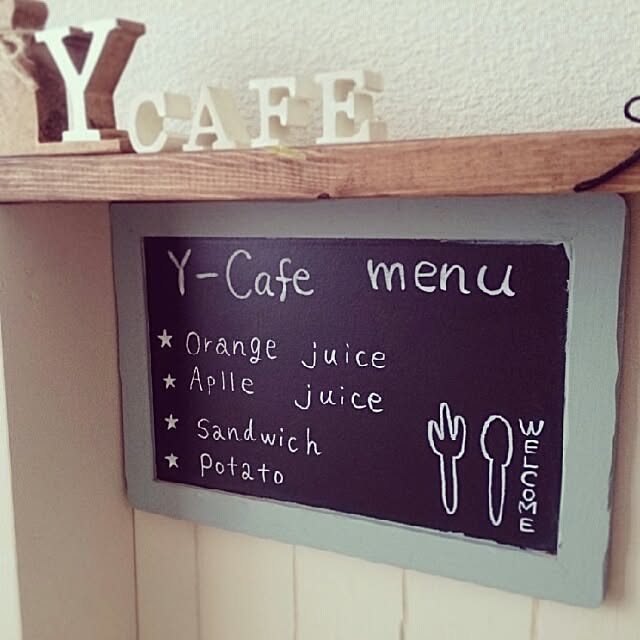 Y CAFE
Y-Cafe menu
★ Orange juice
★ Aplle juice
★ Sandwich
★ Potato
WELCOME